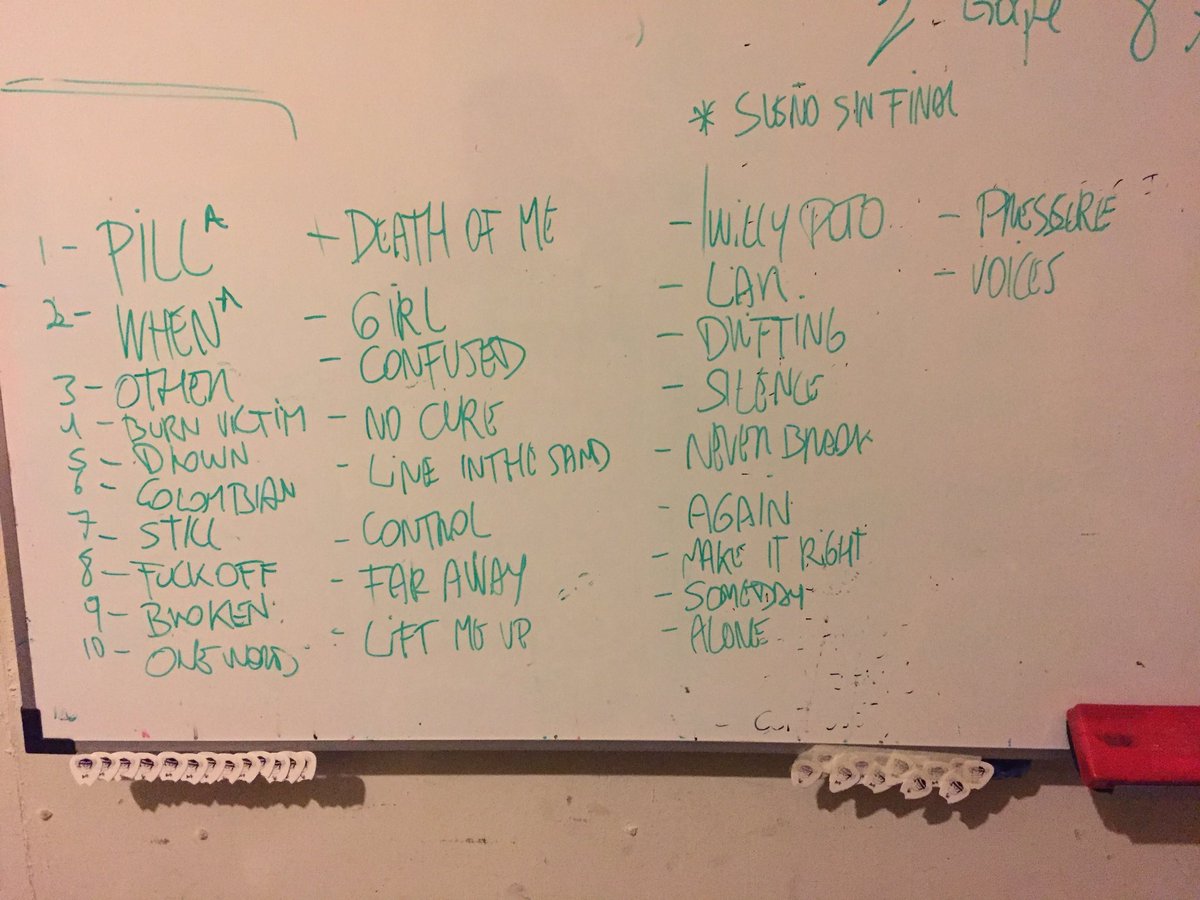 * SUEÑO SIN FINAL
1 - PILL A
2 - WHEN A
3 - OTHER
4 - BURN VICTIM
5 - DROWN
6 - COLOMBIAN
7 - STILL
8 - FUCK OFF
9 - BROKEN
10 - ONE WORD
+ DEATH OF ME
- GIRL
- CONFUSED
- NO CURE
- LINE IN THE SAND
- CONTROL
- FAR AWAY
- LIFT ME UP
- WILLY PUTO
- LAR.
- DRIFTING
- SILENCE
- NEVER BREAK
- AGAIN
- MAKE IT RIGHT
- SOMEDAY
- ALONE
- PRESSURE
- VOICES